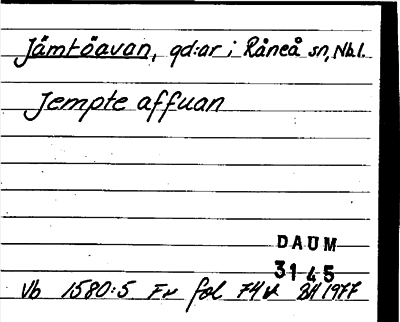 Jämtöavan, gd:ar i Råneå sn, Nbl.
Jempte affuan
DAUM
3145
Vb 1580:5 Fv fol 74 v BH 1977